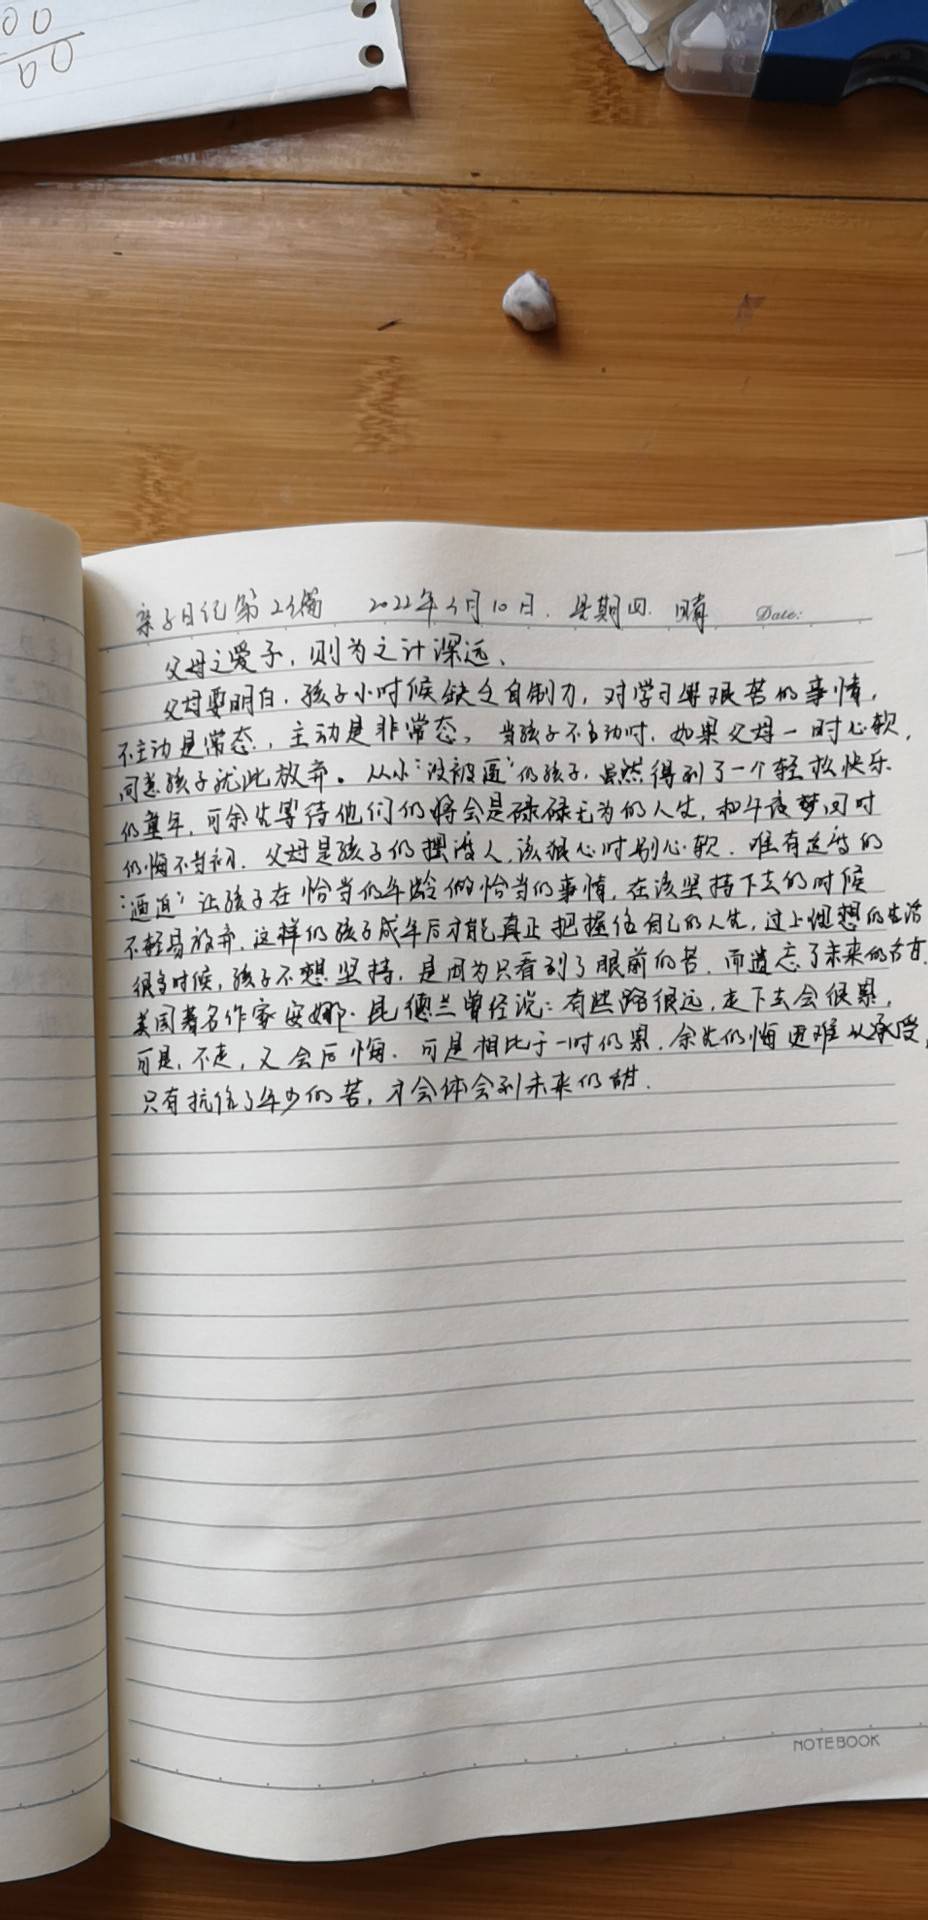 00
00
亲子日记第2 篇 2022年 月10日. 星期四. 晴 Date:
父母之爱子，则为之计深远、
父母要明白，孩子小时候缺乏自制力，对学习等艰苦的事情，
不主动是常态，主动是非常态。当孩子不主动时，如果父母一时心软，
同意孩子就此放弃。从小“没被逼”的孩子，虽然得到了一个轻松快乐
的童年，可余生等待他们的将会是碌碌无为的人生，和午夜梦回时
的悔不当初．父母是孩子的摆渡人，该狠心时别心软．唯有适当的
“逼迫”让孩子在恰当的年龄做恰当的事情，在该坚持下去的时候
不轻易放弃，这样的孩子成年后才能真正把握住自己的人生，过上理想的生活
很多时候，孩子不想坚持，是因为只看到了眼前的苦．而遗忘了未来的苦
美国著名作家安娜·昆德兰曾经说：有些路很远，走下去会很累，
可是，不走，又会后悔．可是相比于一时的累．余生的悔更难以承受，
只有抗住了年少的苦，才会体会到未来的甜．
NOTEBOOK